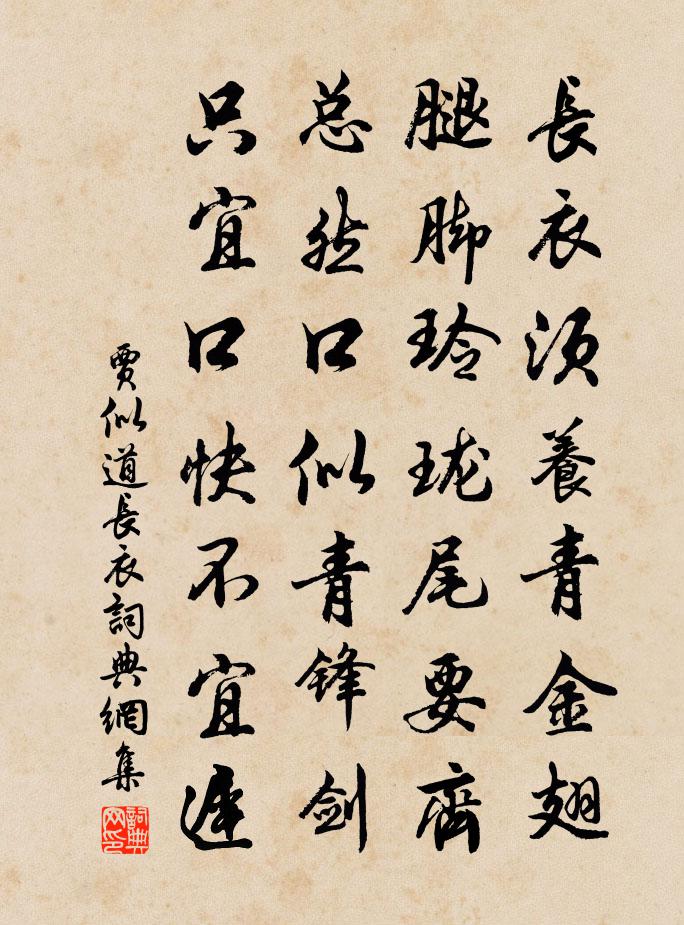 長衣须養青金翅
腿脚玲珑尾要齊
总然口似青锋剑
只宜口快不宜遅
賈似道長衣詞典網集
詞典网印